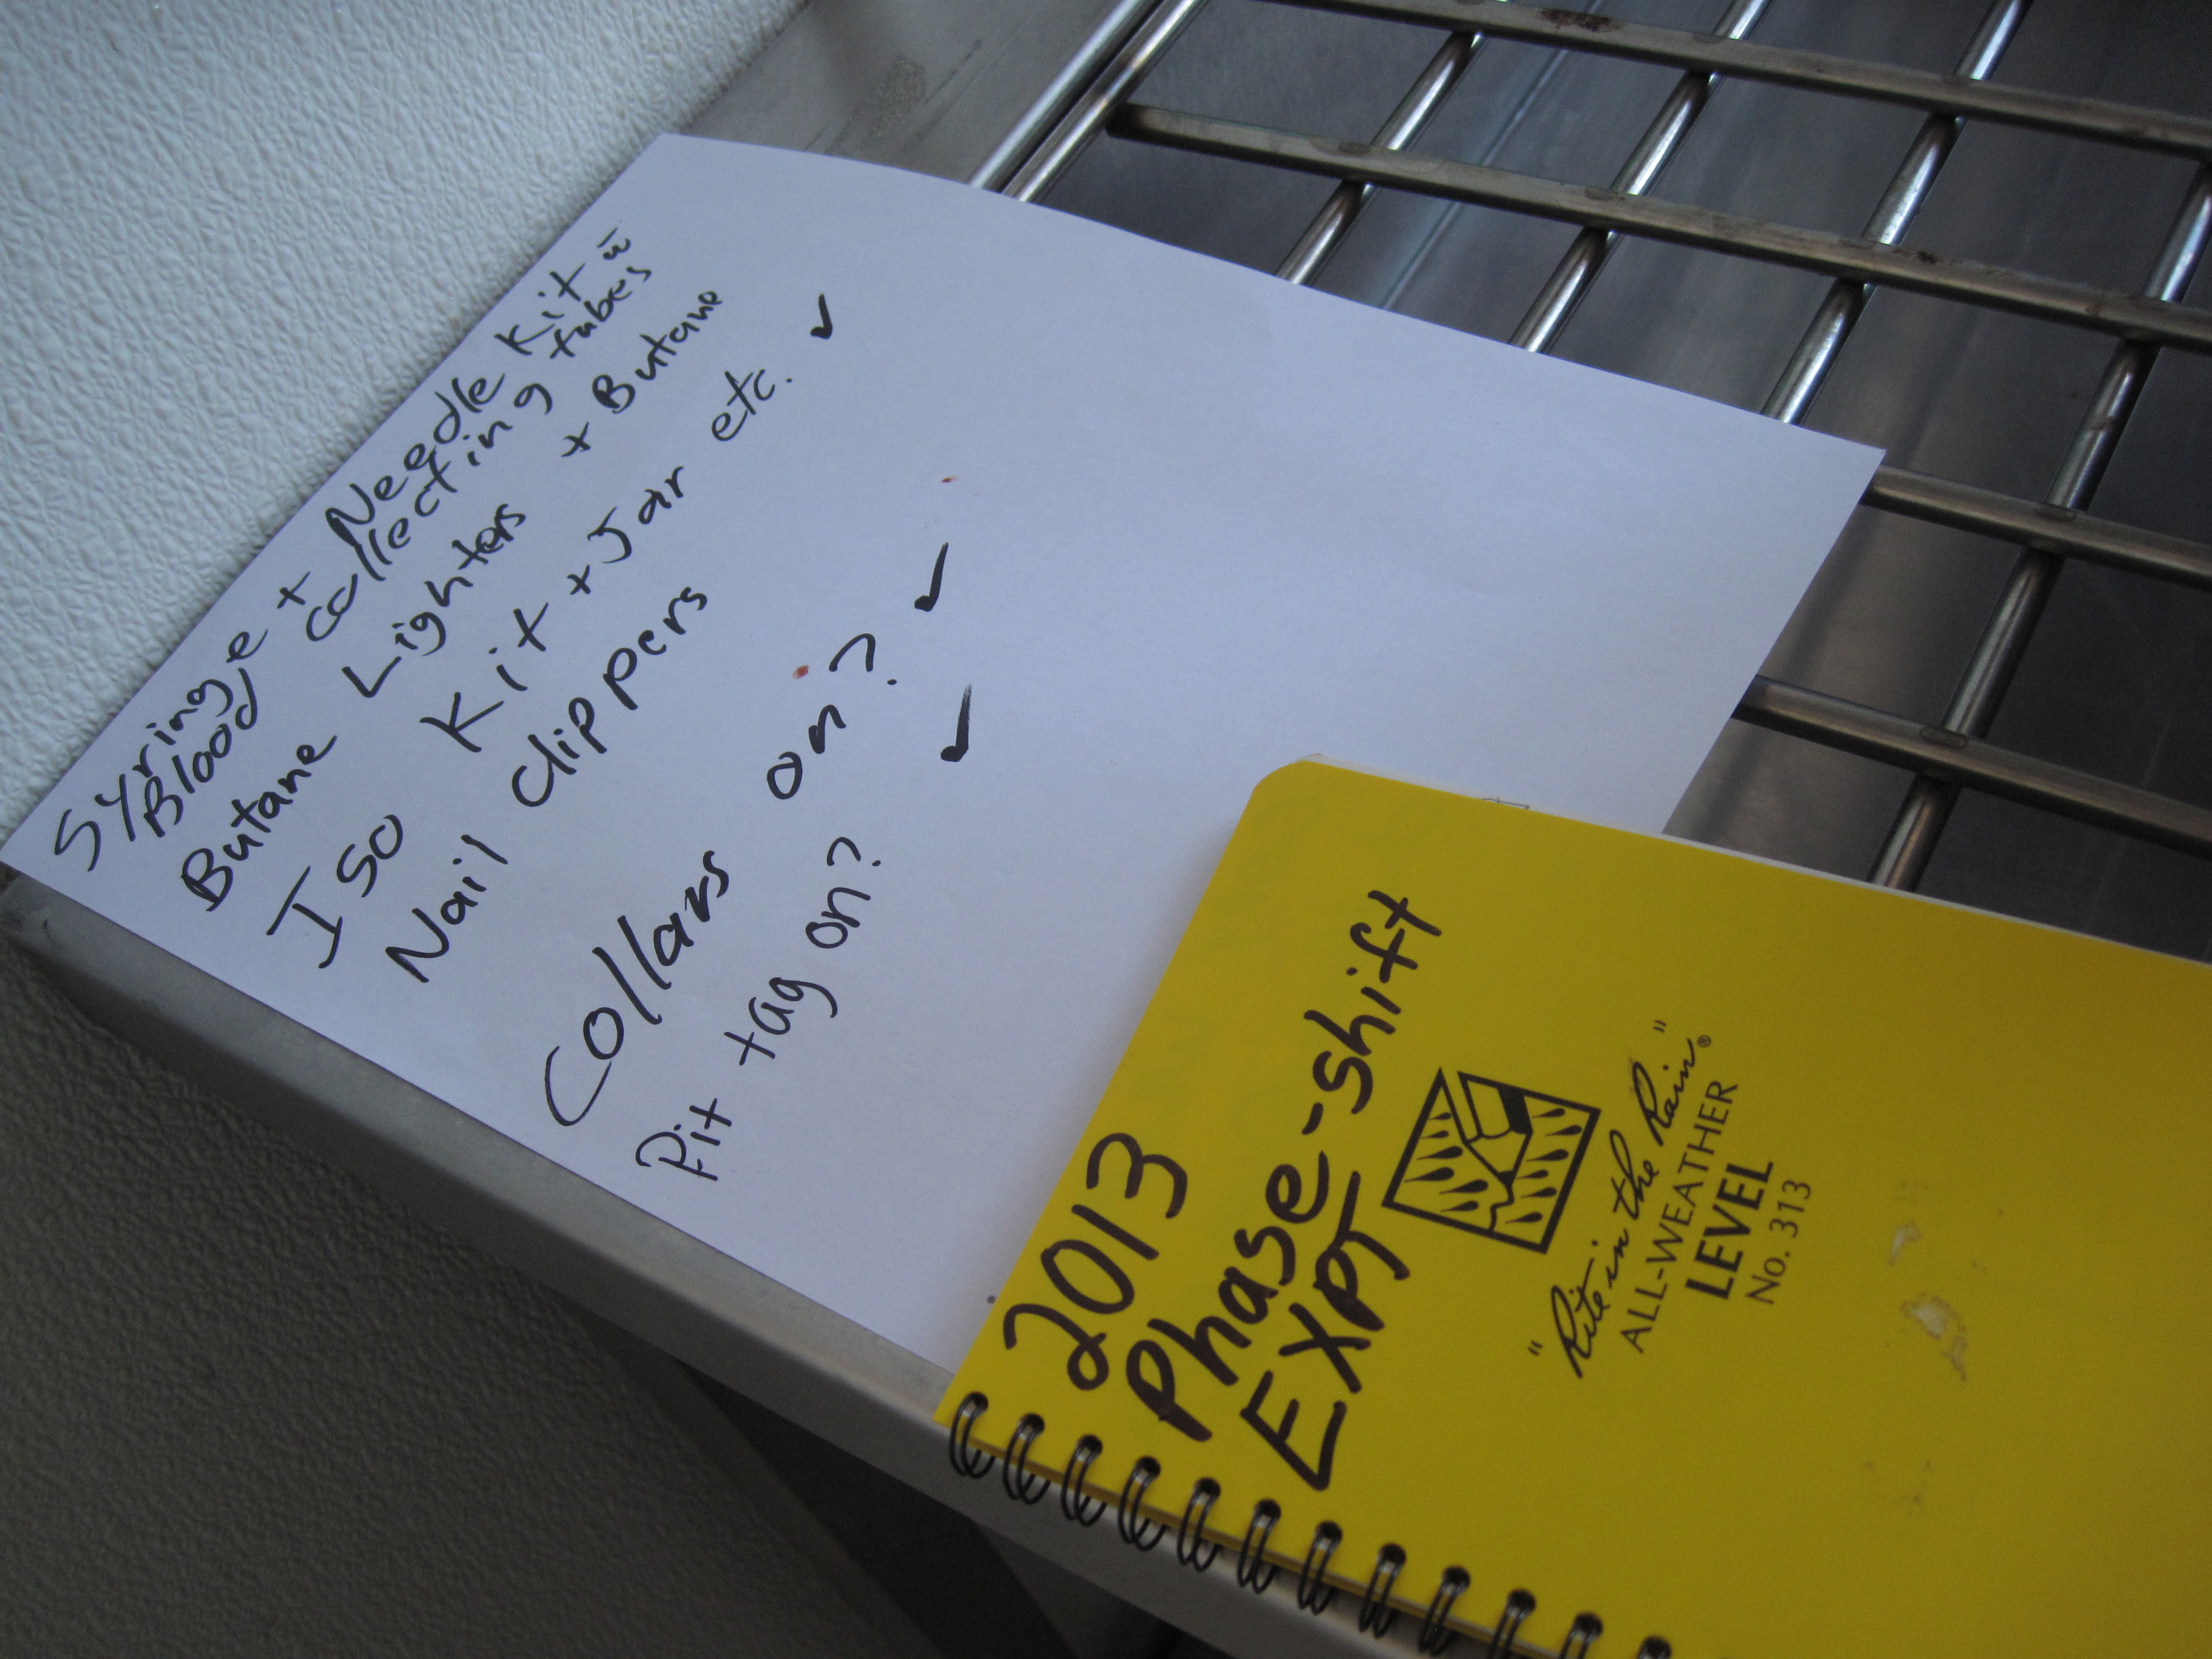 Syringe + Needle Kit w̄
Blood collecting tubes
Butane Lighters + Butane
Iso Kit + Jar etc. ✓
Nail clippers
Collars on? ✓
Pit tag on? ✓
2013
Phase-shift
EXPT
"Rite in the Rain"®
ALL-WEATHER
LEVEL
No. 313